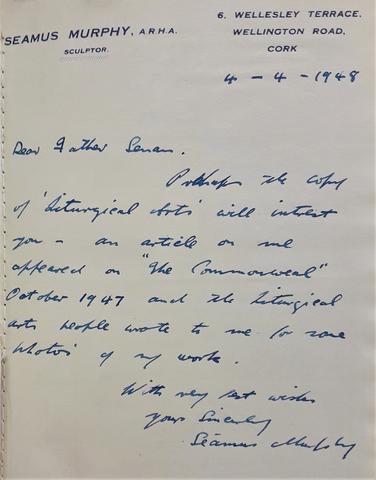 SEAMUS MURPHY, A.R.H.A.
SCULPTOR.
6. WELLESLEY TERRACE,
WELLINGTON ROAD,
CORK
4 – 4 – 1948
Dear Father Senan.
Perhaps the copy
of 'Liturgical Arts' will interest
you – an article on me
appeared on "The Commonweal"
October 1947 and the Liturgical
arts people wrote to me for some
photos of my work.
With very best wishes
yours Sincerely
Séamus Murphy